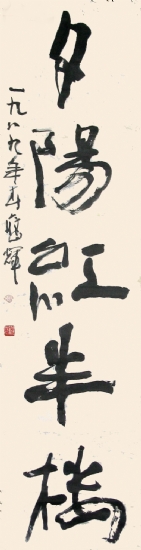 夕陽紅半樓
一九八九年春